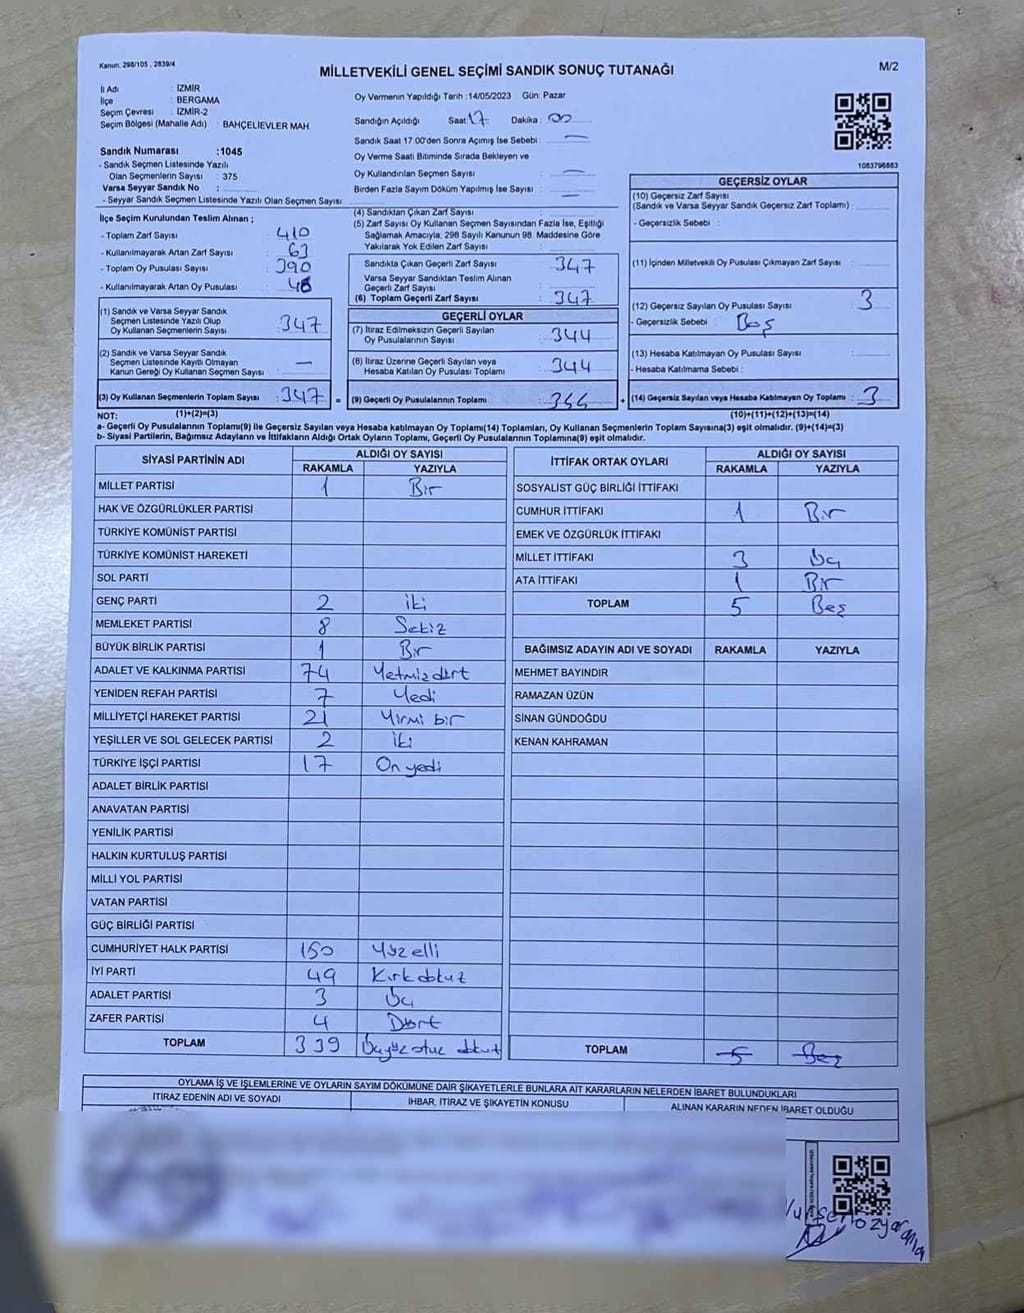 Kanun: 298/105 , 2839/4
MİLLETVEKİLİ GENEL SEÇİMİ SANDIK SONUÇ TUTANAĞI
M/2
İl Adı : İZMİR
İlçe : BERGAMA
Seçim Çevresi : İZMİR-2
Seçim Bölgesi (Mahalle Adı) : BAHÇELİEVLER MAH.
Oy Vermenin Yapıldığı Tarih :14/05/2023 Gün: Pazar
Sandığın Açıldığı Saat 17 Dakika : 00
Sandık Saat 17:00'den Sonra Açımış İse Sebebi : —
Oy Verme Saati Bitiminde Sırada Bekleyen ve
Oy Kullandırılan Seçmen Sayısı : —
Birden Fazla Sayım Döküm Yapılmış İse Sayısı : —
1083796863
Sandık Numarası :1045
- Sandık Seçmen Listesinde Yazılı
Olan Seçmenlerin Sayısı : 375
Varsa Seyyar Sandık No :
- Seyyar Sandık Seçmen Listesinde Yazılı Olan Seçmen Sayısı :
İlçe Seçim Kurulundan Teslim Alınan ;
- Toplam Zarf Sayısı : 410
- Kullanılmayarak Artan Zarf Sayısı : 63
- Toplam Oy Pusulası Sayısı : 390
- Kullanılmayarak Artan Oy Pusulası :
(1) Sandık ve Varsa Seyyar Sandık
Seçmen Listesinde Yazılı Olup
Oy Kullanan Seçmenlerin Sayısı : 347
(2) Sandık ve Varsa Seyyar Sandık
Seçmen Listesinde Kayıtlı Olmayan
Kanun Gereği Oy Kullanan Seçmen Sayısı : —
(3) Oy Kullanan Seçmenlerin Toplam Sayısı : 347 =
(4) Sandıktan Çıkan Zarf Sayısı :
(5) Zarf Sayısı Oy Kullanan Seçmen Sayısından Fazla İse, Eşitliği
Sağlamak Amacıyla, 298 Sayılı Kanunun 98. Maddesine Göre
Yakılarak Yok Edilen Zarf Sayısı :
Sandıkta Çıkan Geçerli Zarf Sayısı : 347
Varsa Seyyar Sandıktan Teslim Alınan
Geçerli Zarf Sayısı
(6) Toplam Geçerli Zarf Sayısı : 347
GEÇERLİ OYLAR
(7) İtiraz Edilmeksizin Geçerli Sayılan
Oy Pusulalarının Sayısı : 344
(8) İtiraz Üzerine Geçerli Sayılan veya
Hesaba Katılan Oy Pusulası Toplamı : 344
(9) Geçerli Oy Pusulalarının Toplamı : 344 +
GEÇERSİZ OYLAR
(10) Geçersiz Zarf Sayısı
(Sandık ve Varsa Seyyar Sandık Geçersiz Zarf Toplamı) :
- Geçersizlik Sebebi :
(11) İçinden Milletvekili Oy Pusulası Çıkmayan Zarf Sayısı :
(12) Geçersiz Sayılan Oy Pusulası Sayısı : 3
- Geçersizlik Sebebi : Boş
(13) Hesaba Katılmayan Oy Pusulası Sayısı :
- Hesaba Katılmama Sebebi :
(14) Geçersiz Sayılan veya Hesaba Katılmayan Oy Toplamı : 3
NOT: (1)+(2)=(3) (10)+(11)+(12)+(13)=(14)
a- Geçerli Oy Pusulalarının Toplamı(9) ile Geçersiz Sayılan veya Hesaba katılmayan Oy Toplamı(14) Toplamları, Oy Kullanan Seçmenlerin Toplam Sayısına(3) eşit olmalıdır. (9)+(14)=(3)
b- Siyasi Partilerin, Bağımsız Adayların ve İttifakların Aldığı Ortak Oyların Toplamı, Geçerli Oy Pusulalarının Toplamına(9) eşit olmalıdır.
SİYASİ PARTİNİN ADI ALDIĞI OY SAYISI
RAKAMLA YAZIYLA
MİLLET PARTİSİ 1 Bir
HAK VE ÖZGÜRLÜKLER PARTİSİ
TÜRKİYE KOMÜNİST PARTİSİ
TÜRKİYE KOMÜNİST HAREKETİ
SOL PARTİ
GENÇ PARTİ 2 iki
MEMLEKET PARTİSİ 8 Sekiz
BÜYÜK BİRLİK PARTİSİ 1 Bir
ADALET VE KALKINMA PARTİSİ 74 Yetmiz dört
YENİDEN REFAH PARTİSİ 7 Yedi
MİLLİYETÇİ HAREKET PARTİSİ 21 Yirmi bir
YEŞİLLER VE SOL GELECEK PARTİSİ 2 iki
TÜRKİYE İŞÇİ PARTİSİ 17 On yedi
ADALET BİRLİK PARTİSİ
ANAVATAN PARTİSİ
YENİLİK PARTİSİ
HALKIN KURTULUŞ PARTİSİ
MİLLİ YOL PARTİSİ
VATAN PARTİSİ
GÜÇ BİRLİĞİ PARTİSİ
CUMHURİYET HALK PARTİSİ 150 Yüzelli
İYİ PARTİ 49 Kırkdokuz
ADALET PARTİSİ 3 Üç
ZAFER PARTİSİ 4 Dört
TOPLAM 339 Üçyüz otuz dokuz
İTTİFAK ORTAK OYLARI ALDIĞI OY SAYISI
RAKAMLA YAZIYLA
SOSYALİST GÜÇ BİRLİĞİ İTTİFAKI
CUMHUR İTTİFAKI 1 Bir
EMEK VE ÖZGÜRLÜK İTTİFAKI
MİLLET İTTİFAKI 3 Üç
ATA İTTİFAKI 1 Bir
TOPLAM 5 Beş
BAĞIMSIZ ADAYIN ADI VE SOYADI RAKAMLA YAZIYLA
MEHMET BAYINDIR
RAMAZAN ÜZÜN
SİNAN GÜNDOĞDU
KENAN KAHRAMAN
TOPLAM 5 Beş
OYLAMA İŞ VE İŞLEMLERİNE VE OYLARIN SAYIM DÖKÜMÜNE DAİR ŞİKAYETLERLE BUNLARA AİT KARARLARIN NELERDEN İBARET BULUNDUKLARI
İTİRAZ EDENİN ADI VE SOYADI İHBAR, İTİRAZ VE ŞİKAYETİN KONUSU ALINAN KARARIN NEDEN İBARET OLDUĞU